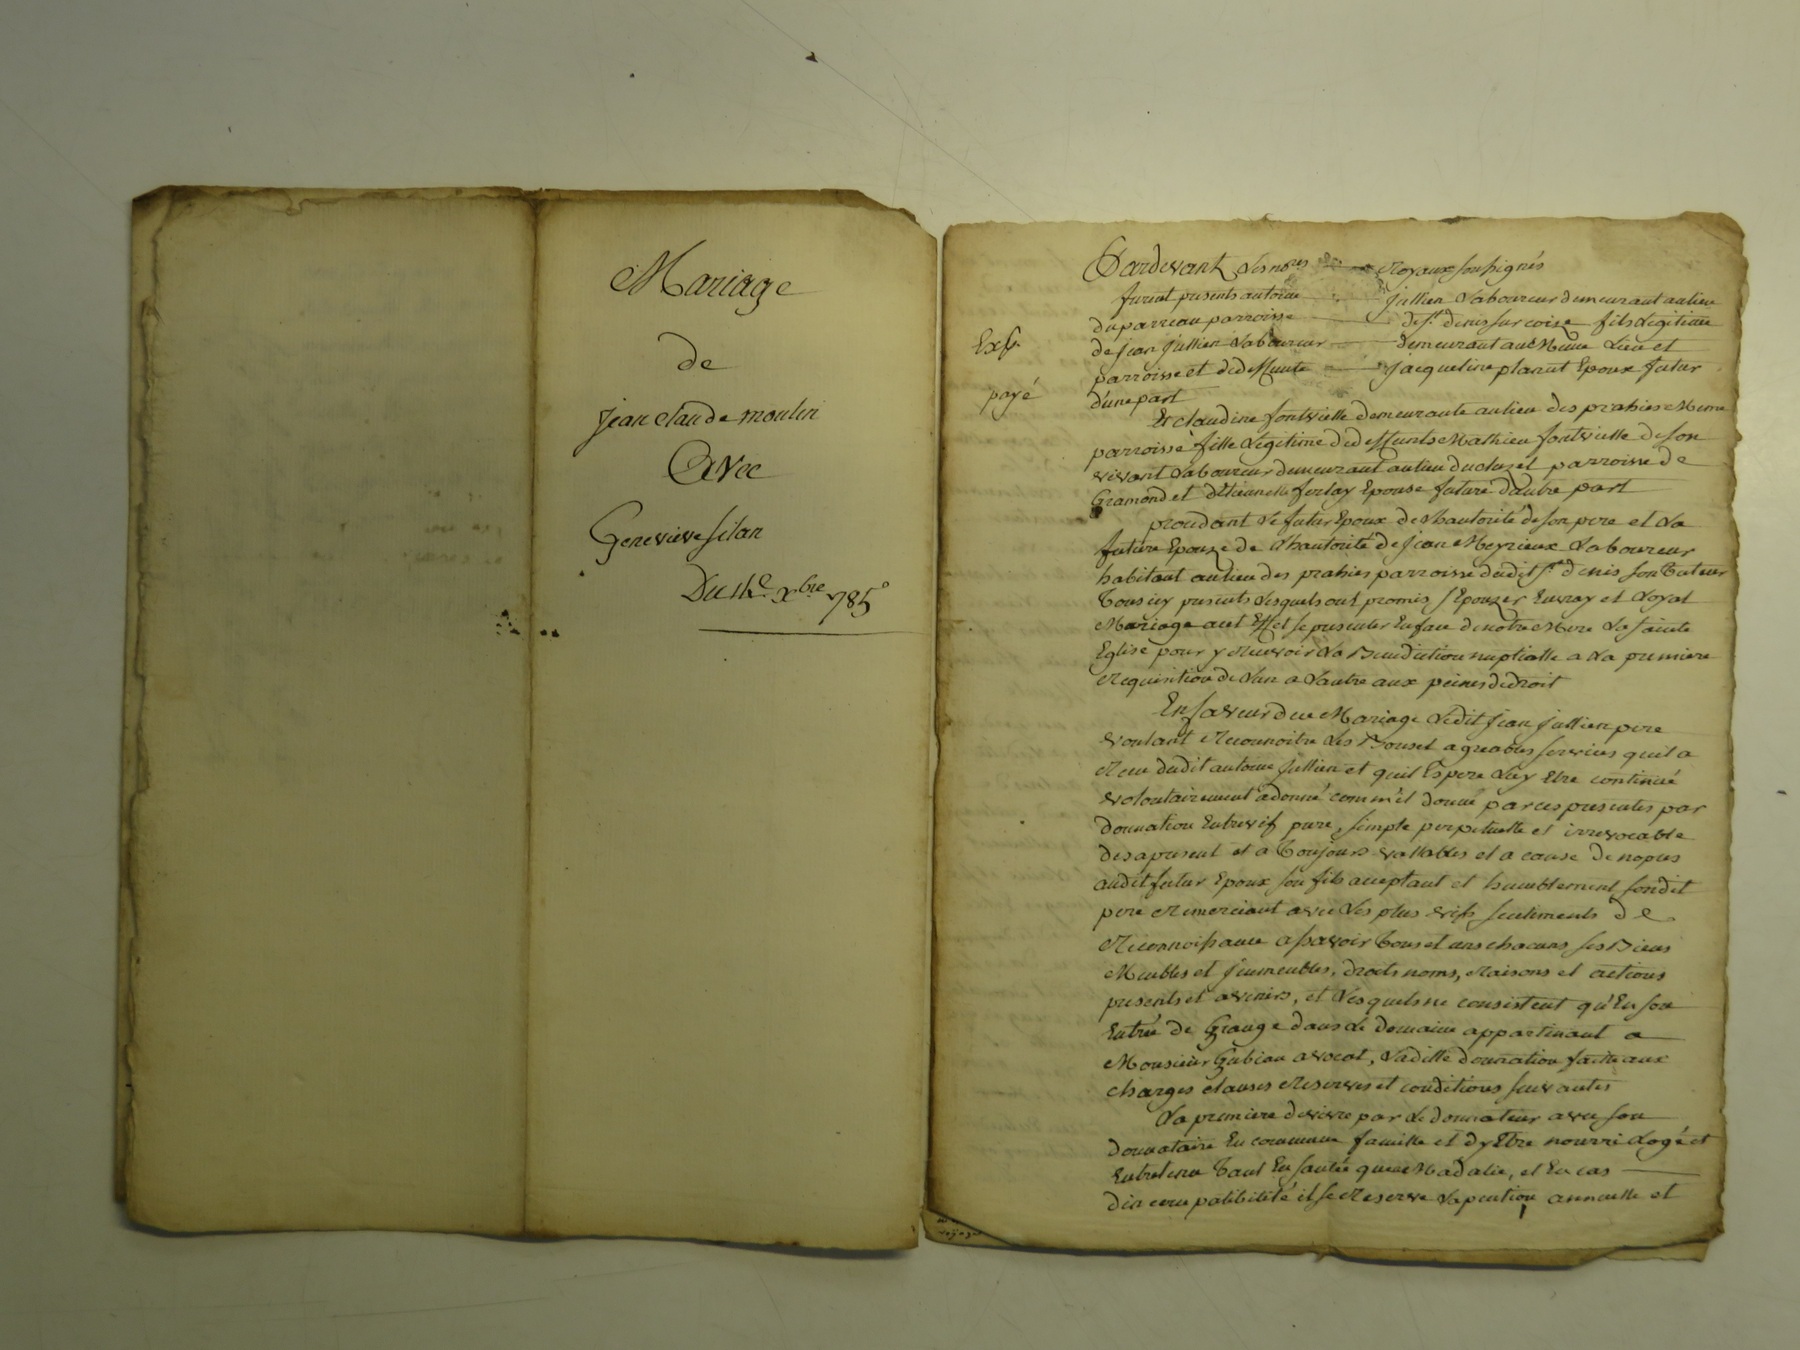 Mariage
de
jean claude moulin
Avec
Genevieve silan
Du 11e. Xbre 1785
Exp.
payé
Pardevant Les no.res Royaux soussignés
furent presents antoine jullien Laboureur demeurant au lieu
du parroisse de st. denis sur coise fils Legitime
de jean jullien Laboureur demeurant au Meme Lieu et
parroisse et de deffunte jacqueline planut Epoux futur
d'une part
Et claudine fontvielle demeurante au lieu des prahies Meme
parroisse fille Legitime de deffunts Mathieu fontvielle de son
vivant Laboureur demeurant au lieu du cluzel parroisse de
Gramond et d'Etiennette ferlay Epouse future d'autre part
procedant Le futur Epoux de L'hautorité de son pere et La
future Epouze de L'hautorité de jean Meyrieux Laboureur
habitant au lieu des prahies parroisse dudit st. denis son Tuteur
Tous icy presents Lesquels ont promis s'Epouzer En vray et Loyal
Mariage a cet Effet se presenter En face de notre Mere La sainte
Eglise pour y Recevoir La Benediction nuptialle a La premiere
Requisition de L'un a L'autre aux peines de droit
En faveur de ce Mariage Ledit jean jullien pere
voulant Reconnoitre Les Bons et agreables services qu'il a
Recu dudit antoine jullien et qu'il Espere Luy Etre continué
volontairement a donné comm'il donne par ces presentes par
donnation Entrevif pure, simple perpetuelle et irrevocable
des a present et a Toujours vallables et a cause de nopces
audit futur Epoux son fils acceptant et humblement sondit
pere Remerciant avec Les plus vifs sentiments de
Reconnoissance a savoir Tous et uns chacuns ses Biens
Meubles et jmmeubles, droits noms, Raisons et actions
presents et avenirs, et Lesquels ne consistent qu'En son
Entrée de Grange dans Le domaine appartenant a
Monsieur Gubian avocat, Ladille donnation faitte aux
charges clauses Reserves et conditions suivantes
La premiere de vivre par Le donnateur avec son
donnataire En commune famille et d'y Etre nourri Logé et
Entretenu Tant En santée que Maladie, et En cas
d'incompatibilité il se Reserve La pention annuelle et